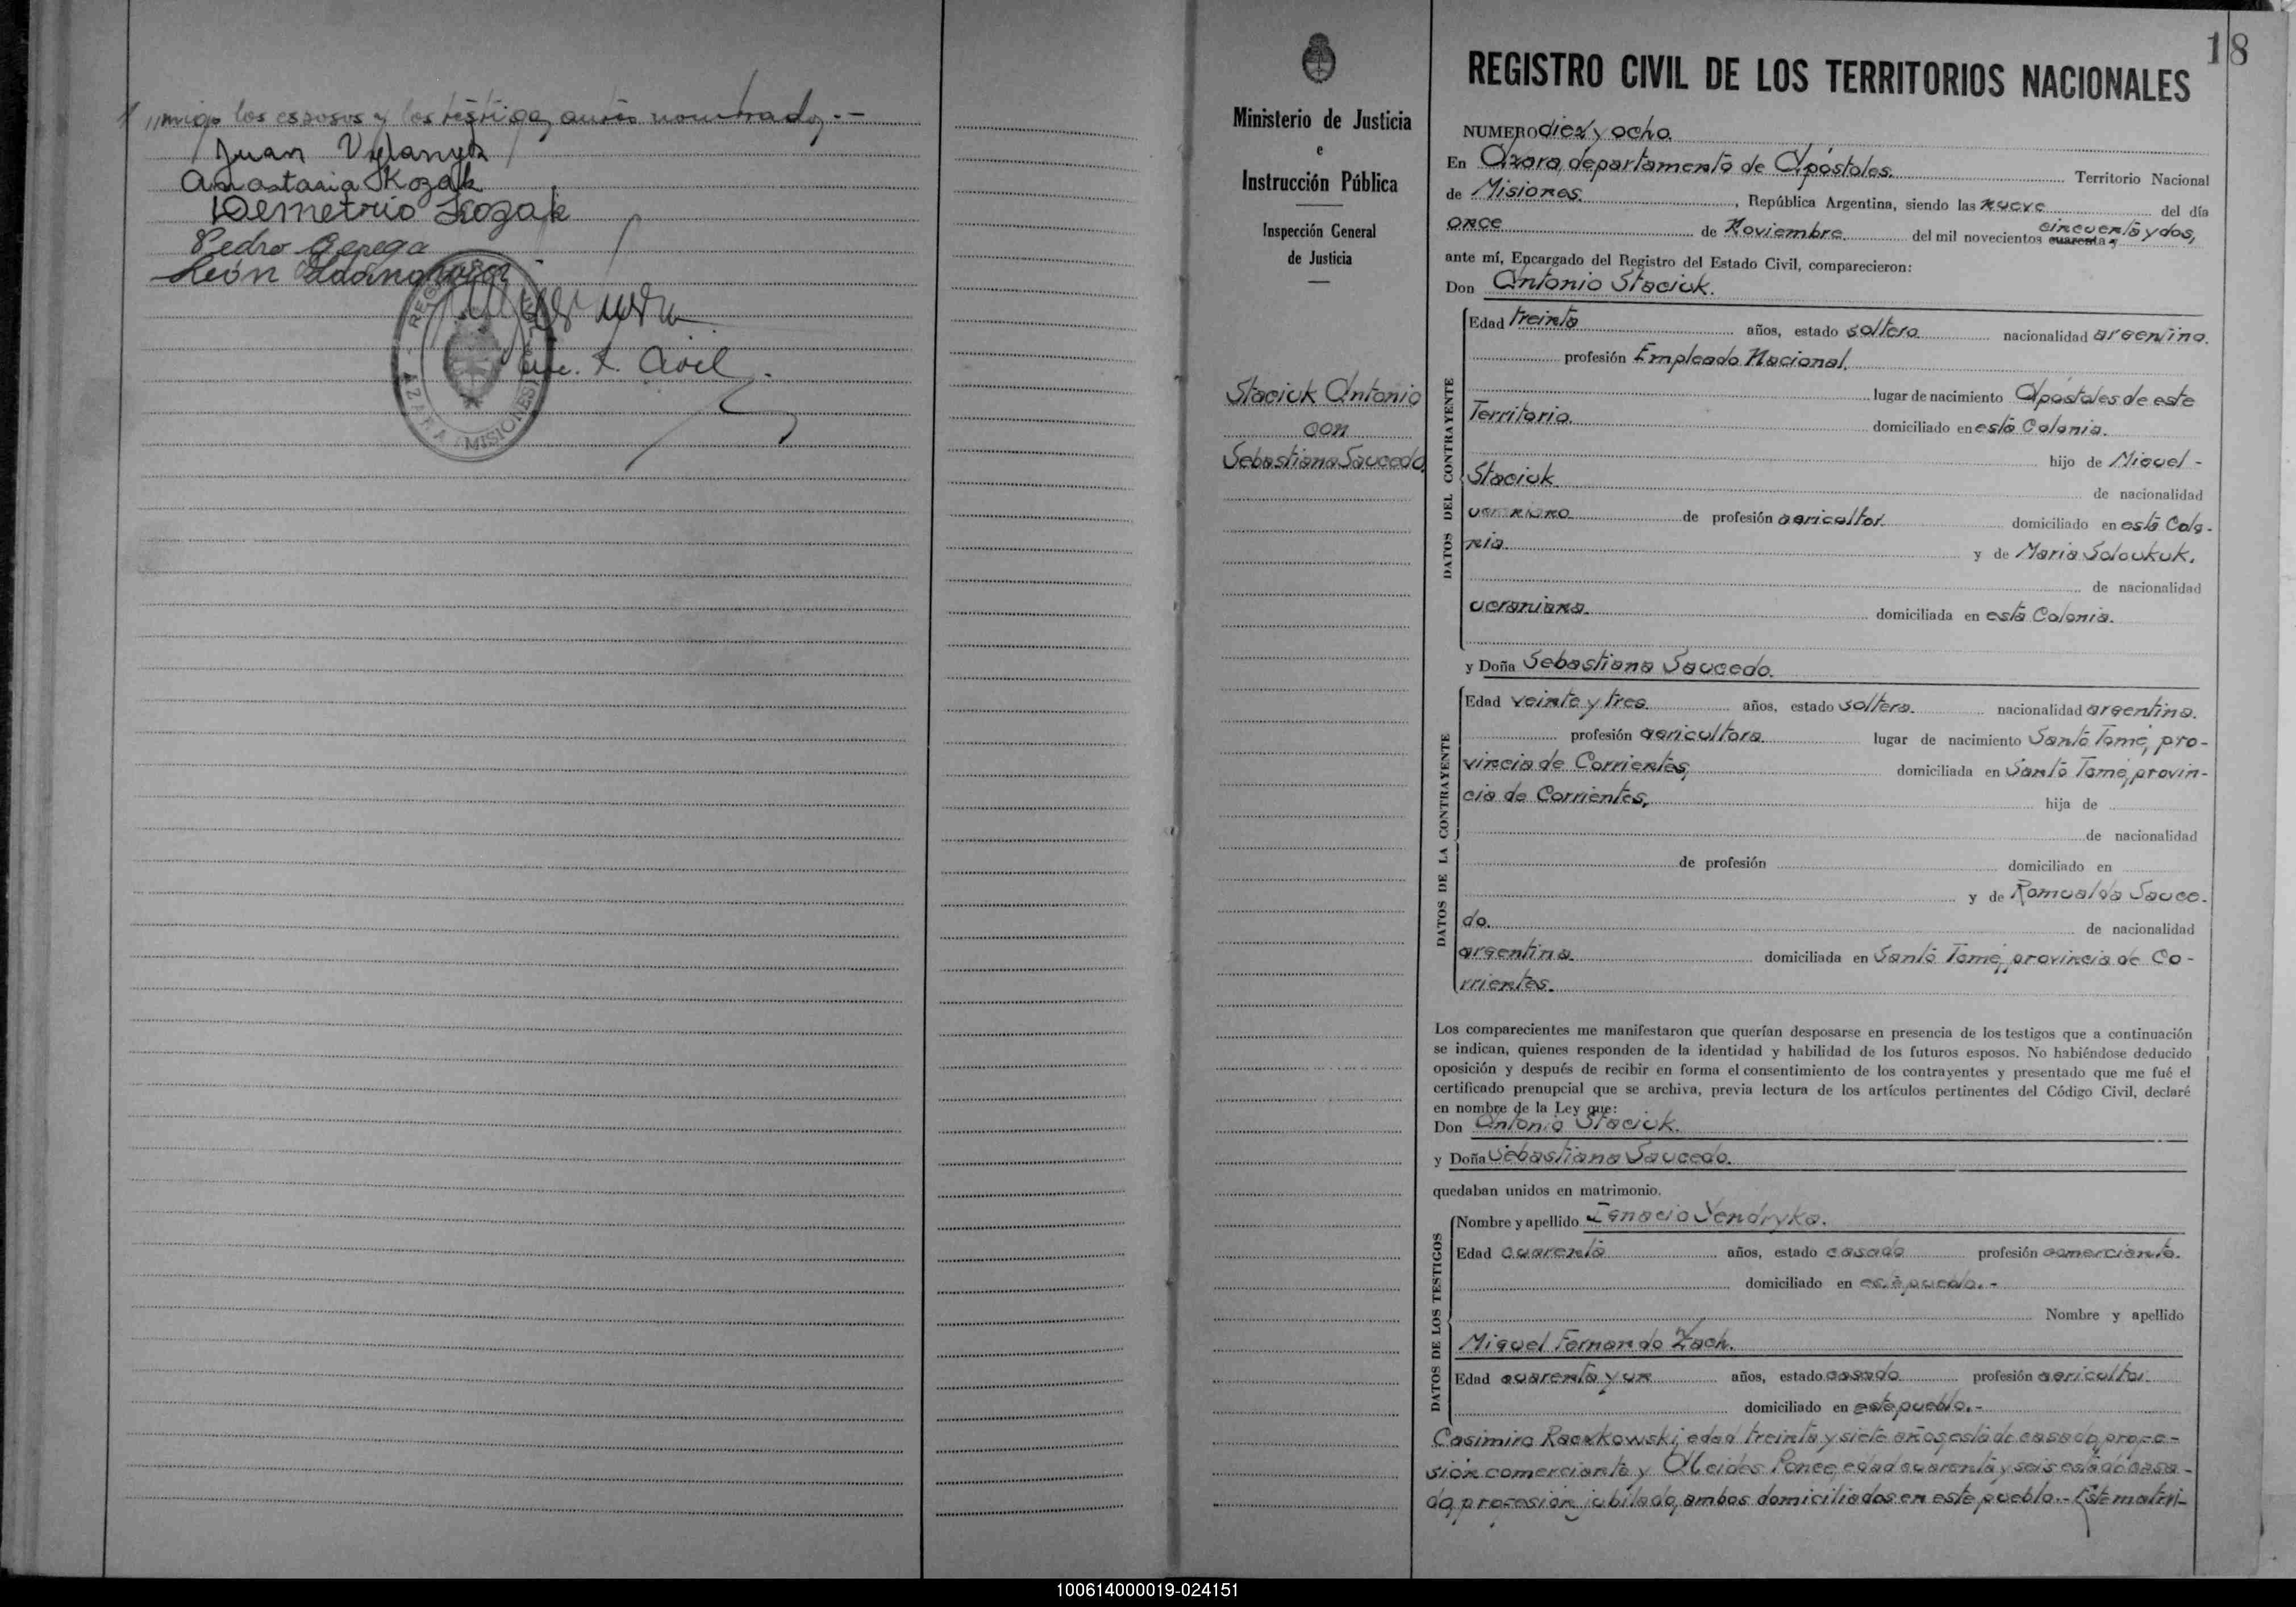 migo los esposos y los testigos antes nombrados.-
Juan
Anastasia Kozak
Demetrio Kozak
Pedro
León
Enc. R. Civil
AZARA (MISIONES)
18
Ministerio de Justicia
e
Instrucción Pública
Inspección General
de Justicia
Staciuk Antonio
con
Sebastiana Saucedo
REGISTRO CIVIL DE LOS TERRITORIOS NACIONALES
NUMERO diez y ocho.
En Azara, departamento de Apóstoles. Territorio Nacional
de Misiones. , República Argentina, siendo las nueve del día
once de Noviembre del mil novecientos cuarenta y cincuenta y dos,
ante mí, Encargado del Registro del Estado Civil, comparecieron:
Don Antonio Staciuk.
DATOS DEL CONTRAYENTE
Edad treinta años, estado soltero nacionalidad argentino.
profesión Empleado Nacional.
lugar de nacimiento Apóstoles de este
Territorio. domiciliado en esta Colonia.
hijo de Miguel -
Staciuk de nacionalidad
ucraniano de profesión agricultor. domiciliado en esta Colo-
nia. y de Maria Solowkuk.
de nacionalidad
ucraniana. domiciliada en esta Colonia.
y Doña Sebastiana Saucedo.
DATOS DE LA CONTRAYENTE
Edad veinte y tres años, estado soltera. nacionalidad argentina.
profesión agricultora lugar de nacimiento Santo Tomé, pro-
vincia de Corrientes, domiciliada en Santo Tomé, provin-
cia de Corrientes, hija de
de nacionalidad
de profesión domiciliado en
y de Romualda Sauce-
do. de nacionalidad
argentina domiciliada en Santo Tomé, provincia de Co-
rrientes.
Los comparecientes me manifestaron que querían desposarse en presencia de los testigos que a continuación
se indican, quienes responden de la identidad y habilidad de los futuros esposos. No habiéndose deducido
oposición y después de recibir en forma el consentimiento de los contrayentes y presentado que me fué el
certificado prenupcial que se archiva, previa lectura de los artículos pertinentes del Código Civil, declaré
en nombre de la Ley que:
Don Antonio Staciuk.
y Doña Sebastiana Saucedo.
quedaban unidos en matrimonio.
DATOS DE LOS TESTIGOS
Nombre y apellido Ignacio Yendryka.
Edad cuarenta años, estado casado profesión comerciante.
domiciliado en este pueblo.-
Nombre y apellido
Miguel Fernando Zach.
Edad cuarenta y un años, estado casado profesión agricultor.
domiciliado en este pueblo.-
Casimiro Raczkowski, edad treinta y siete años, estado casado, profe-
sión comerciante y Alcides Ponce, edad cuarenta y seis, estado casa-
do, profesión jubilado, ambos domiciliados en este pueblo.- Este matri-
100614000019-024151